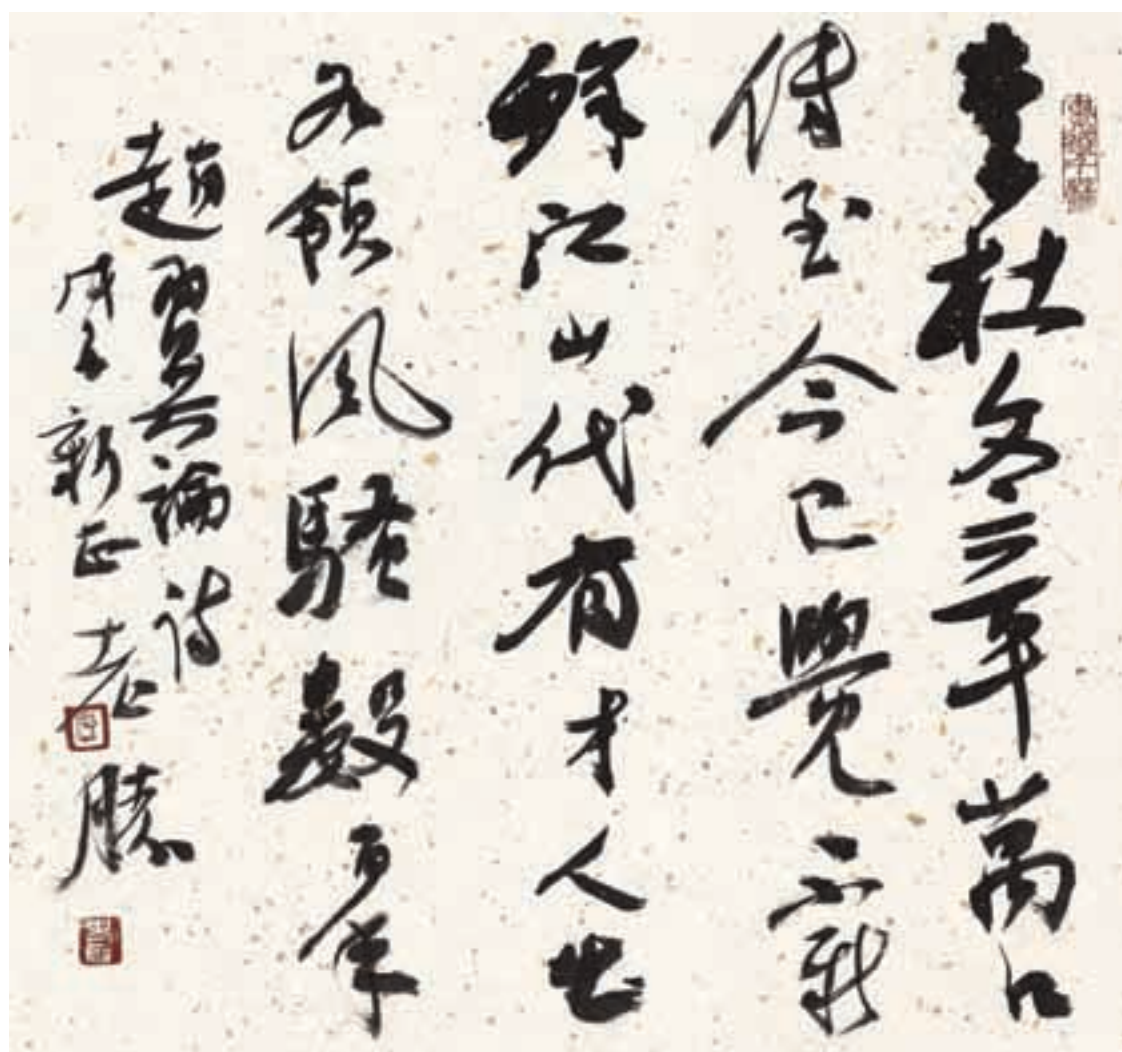 李杜文章萬口
傳至今已覺不新
鮮江山代有才人出
各領風騷數百年
趙翼論詩
戊子新正 勝